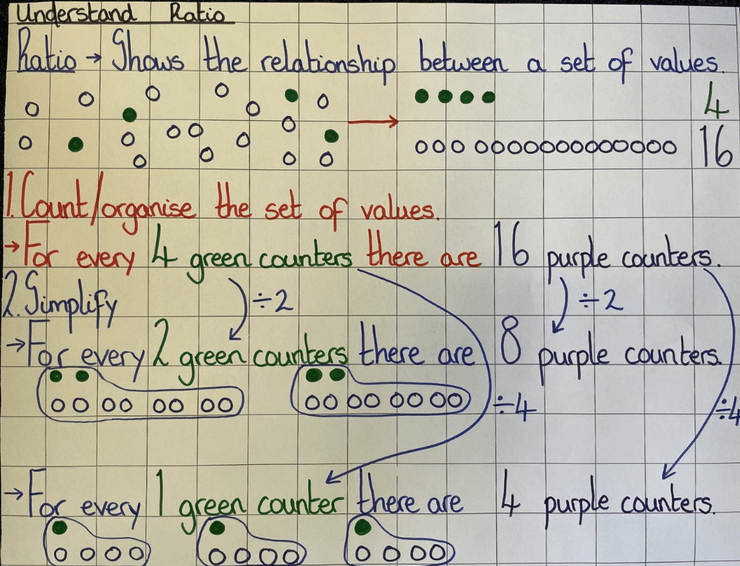 Understand Ratio
Ratio → Shows the relationship between a set of values.
4
16
1. Count/organise the set of values.
→ For every 4 green counters there are 16 purple counters.
2. Simplify
÷2 ÷2
→ For every 2 green counters there are 8 purple counters.
÷4 ÷4
→ For every 1 green counter there are 4 purple counters.